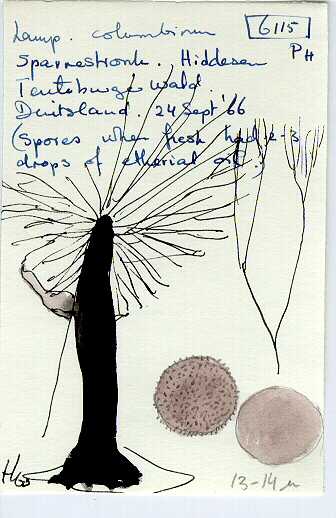 Lamp. columbinum
6115
Sparrestronk. Hiddesen PH
Teutoburger Wald.
Duitsland. 24 Sept '66
(Spores when fresh had 2-3
drops of etherial oil.)
13-14 µ